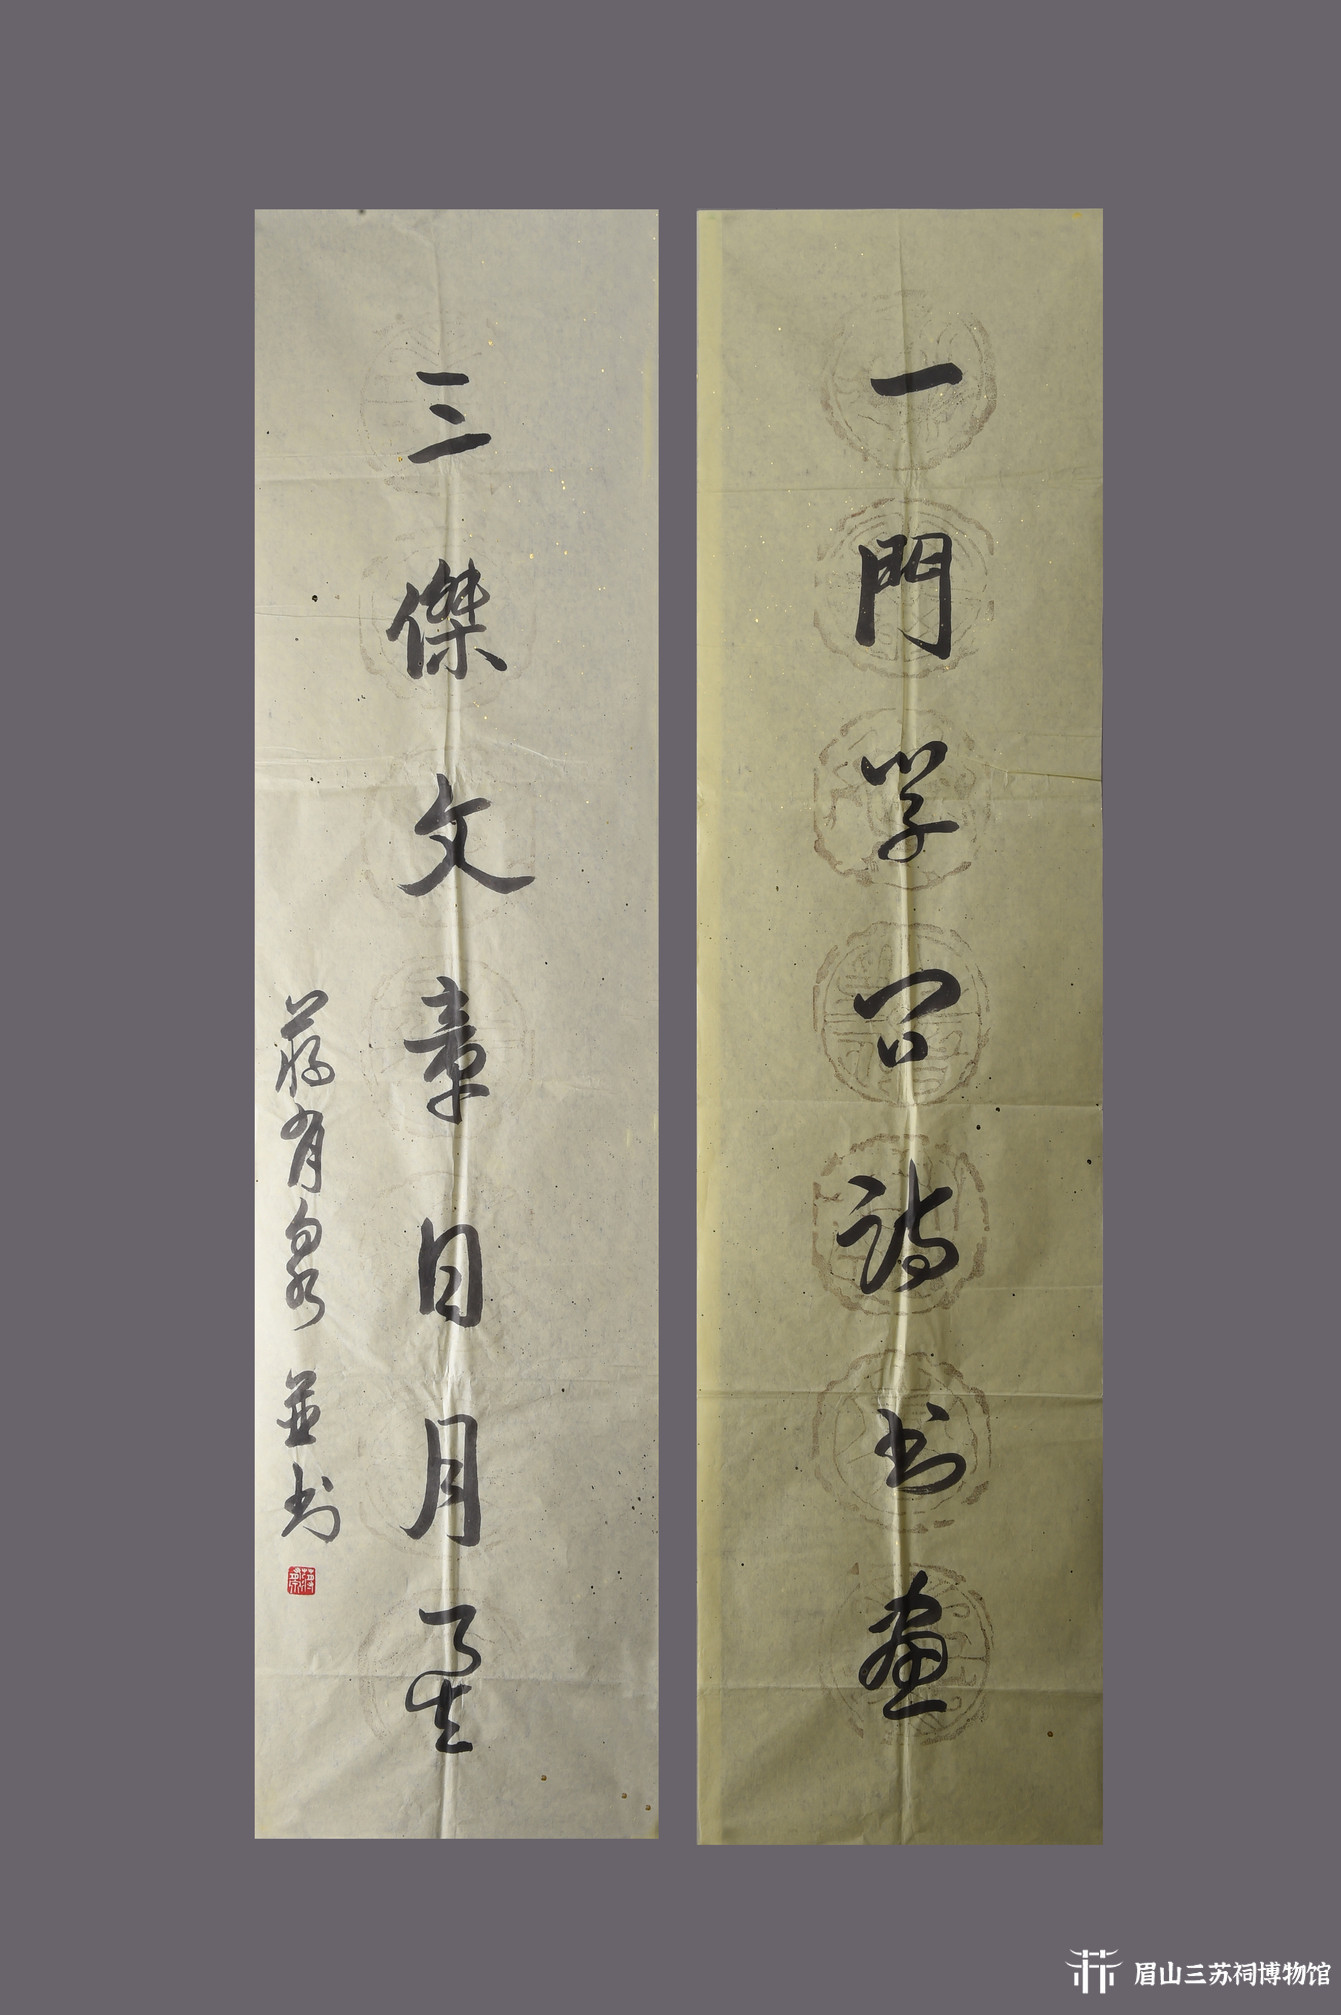 一門學問詩書畫
三傑文章日月星
蔣有泉 並书
眉山三苏祠博物馆